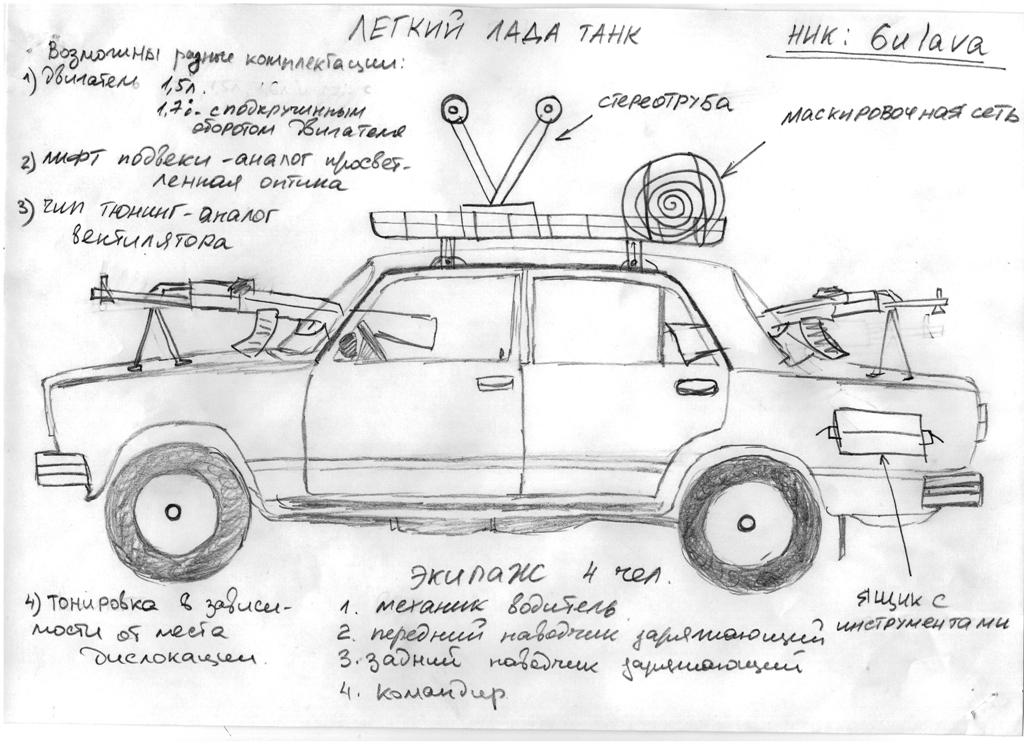 ЛЕГКИЙ ЛАДА ТАНК
НИК: 6ulava
Возможны разные комплектации:
1) Двигатель 1,5л.
1,7i. с подкручинным
оборотом двигателя
2) лифт подвеки - аналог просвет-
ленная оптика
3) чип тюнинг - аналог
вентилятора
стереотруба
маскировочная сеть
ящик с
инструментами
4) тонировка в зависи-
мости от места
дислокации.
Экипаж 4 чел.
1. механик водитель
2. передний наводчик заряжающий
3. задний наводчик заряжающий
4. командир